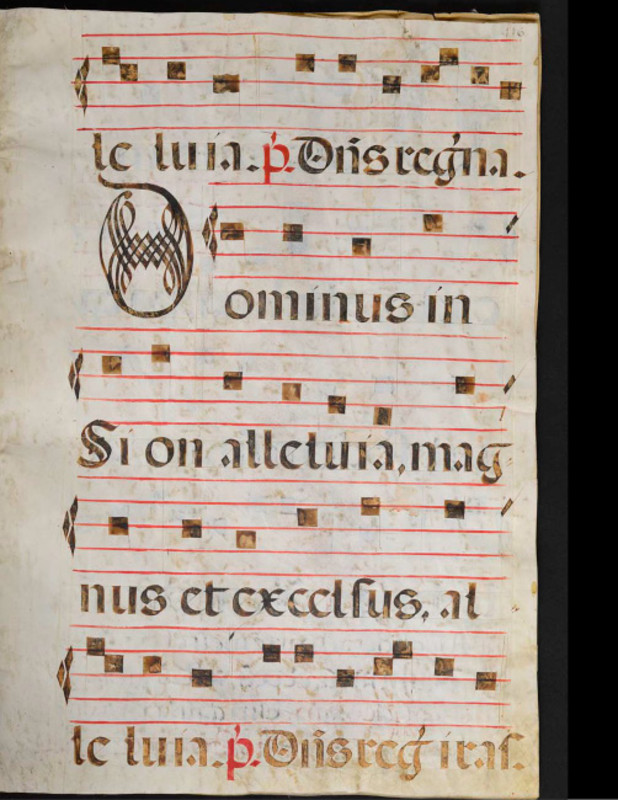 116
le luia. p. Dñs regña.
Dominus in
Sion alleluia, mag
nus et excelsus, al
le luia. p. Dñs reg iras.